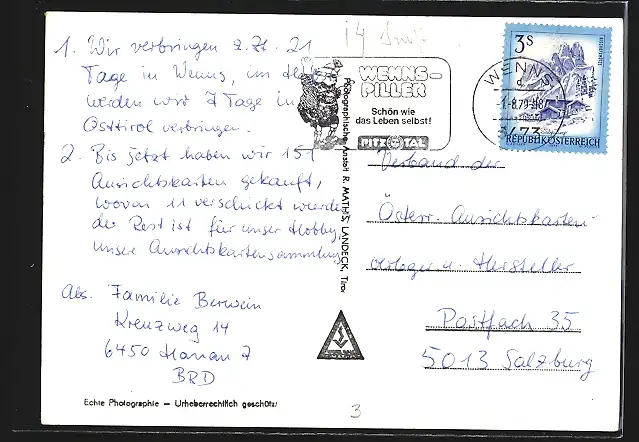 1. Wir verbringen z. Zt. 21
Tage in Wenns, im
werden wir 7 Tage in
Osttirol verbringen.
2. Bis jetzt haben wir 151
Ansichtskarten gekauft,
wovon 11 verschickt wurden,
der Rest ist für unser Hobby,
unsere Ansichtskartensammlung
Abs. Familie Berwein
Kreuzweg 14
6450 Hanau 7
BRD
Echte Photographie — Urheberrechtlich geschützt
Photographische Anstalt R. MATHIS, LANDECK, Tirol
WENNS-
PILLER
Schön wie
das Leben selbst!
PITZTAL
3S
REPUBLIK ÖSTERREICH
WENNS
-1.-8.79-18
6473
Verband der
Österr. Ansichtskarten-
verleger u. Hersteller
Postfach 35
5013 Salzburg
3